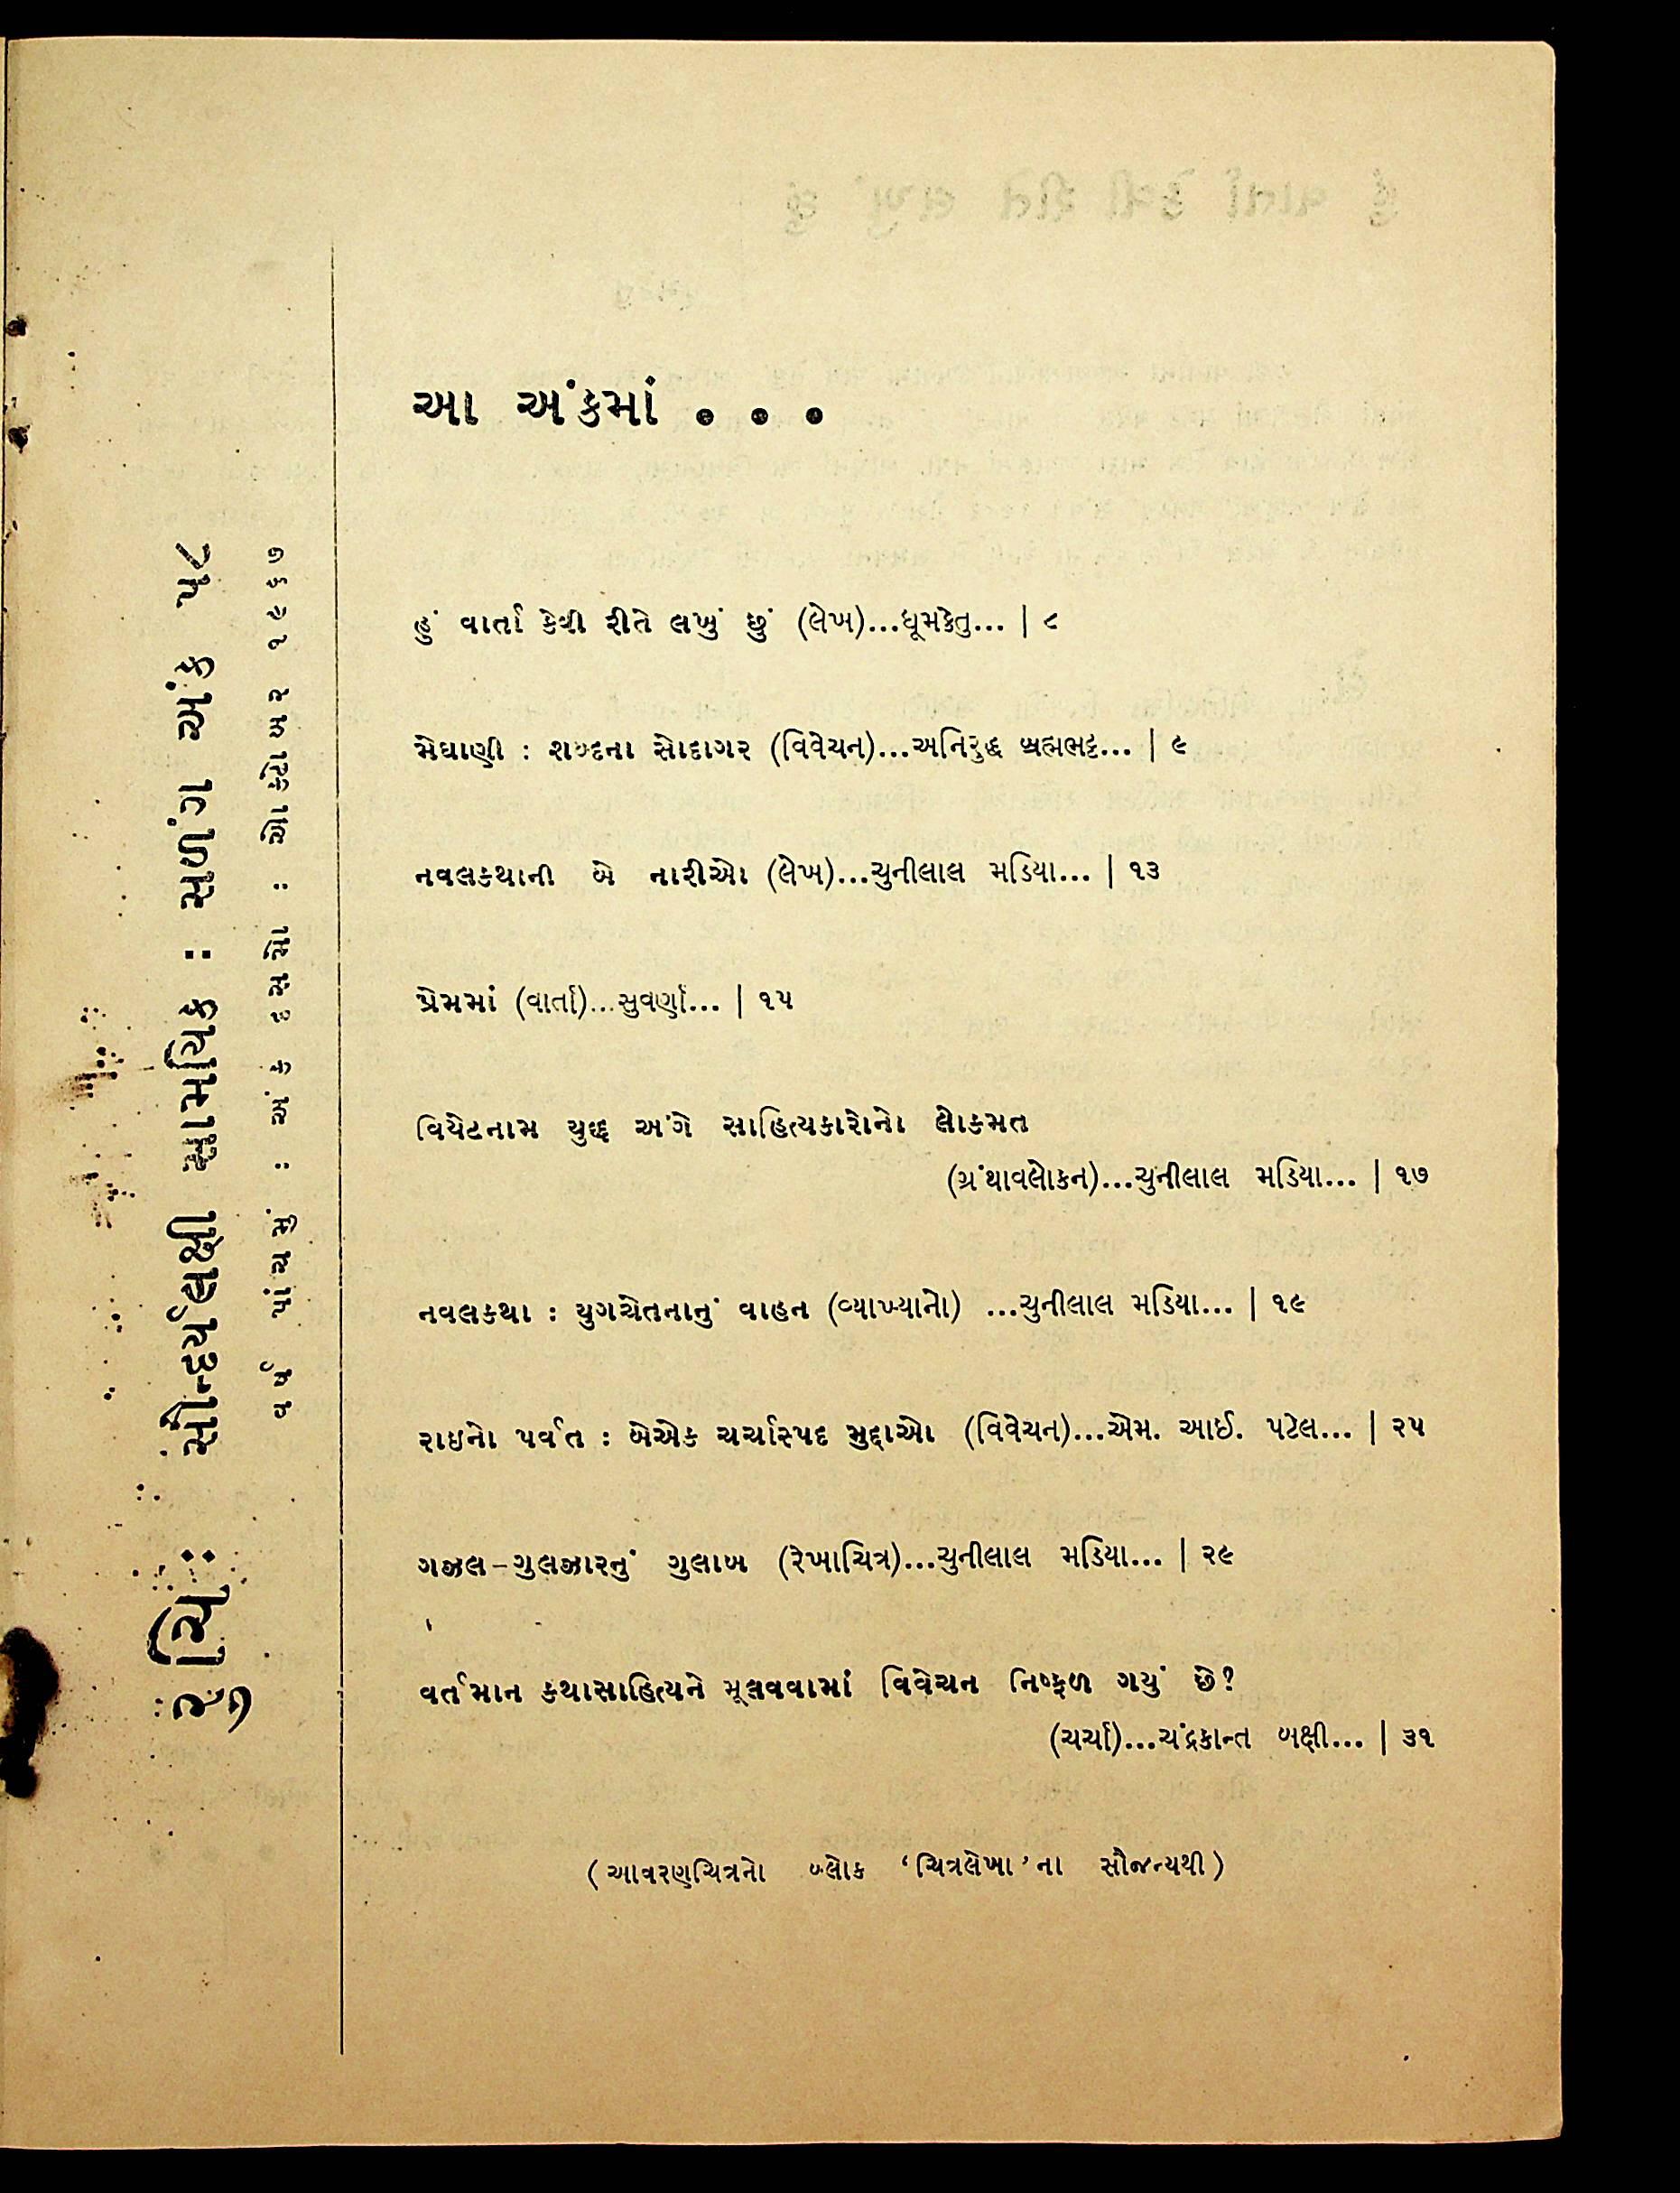 રુચિ: સૌન્દર્યલક્ષી સામયિક : સળંગ અંક ૫૮
વર્ષ પાંચમું : અંક દસમો : ઓકટોબર ૧૯૬૭
આ અંકમાં . . .
હું વાર્તા કેવી રીતે લખું છું (લેખ)...ધૂમકેતુ... | ૮
મેઘાણી : શબ્દના સોદાગર (વિવેચન)...અનિરુદ્ધ બ્રહ્મભટ્ટ... | ૯
નવલકથાની બે નારીઓ (લેખ)...ચુનીલાલ મડિયા... | ૧૩
પ્રેમમાં (વાર્તા)...સુવર્ણા... | ૧૫
વિયેટનામ યુદ્ધ અંગે સાહિત્યકારોનો લોકમત
(ગ્રંથાવલોકન)...ચુનીલાલ મડિયા... | ૧૭
નવલકથા : યુગચેતનાનું વાહન (વ્યાખ્યાનો) ...ચુનીલાલ મડિયા... | ૧૯
રાઇનો પર્વત : બેએક ચર્ચાસ્પદ મુદ્દાઓ (વિવેચન)...એમ. આઈ. પટેલ... | ૨૫
ગઝલ-ગુલઝારનું ગુલાબ (રેખાચિત્ર)...ચુનીલાલ મડિયા... | ૨૯
વર્તમાન કથાસાહિત્યને મૂલવવામાં વિવેચન નિષ્ફળ ગયું છે?
(ચર્ચા)...ચંદ્રકાન્ત બક્ષી... | ૩૧
(આવરણચિત્રનો બ્લોક ‘ચિત્રલેખા’ના સૌજન્યથી)